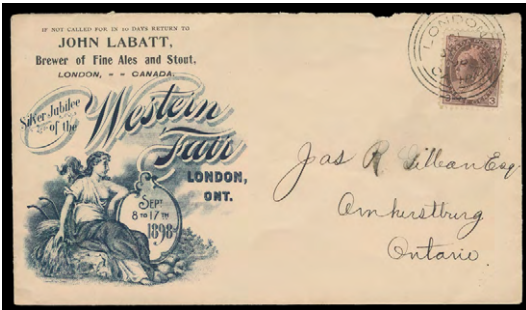 IF NOT CALLED FOR IN 10 DAYS RETURN TO
JOHN LABATT,
Brewer of Fine Ales and Stout,
LONDON, = = CANADA.
Silver Jubilee
of the
Western
Fair
LONDON,
ONT.
SEPT
8 TO 17 TH
1898
LONDON
3
Jas R Gillean Esq
Amherstburg
Ontario.